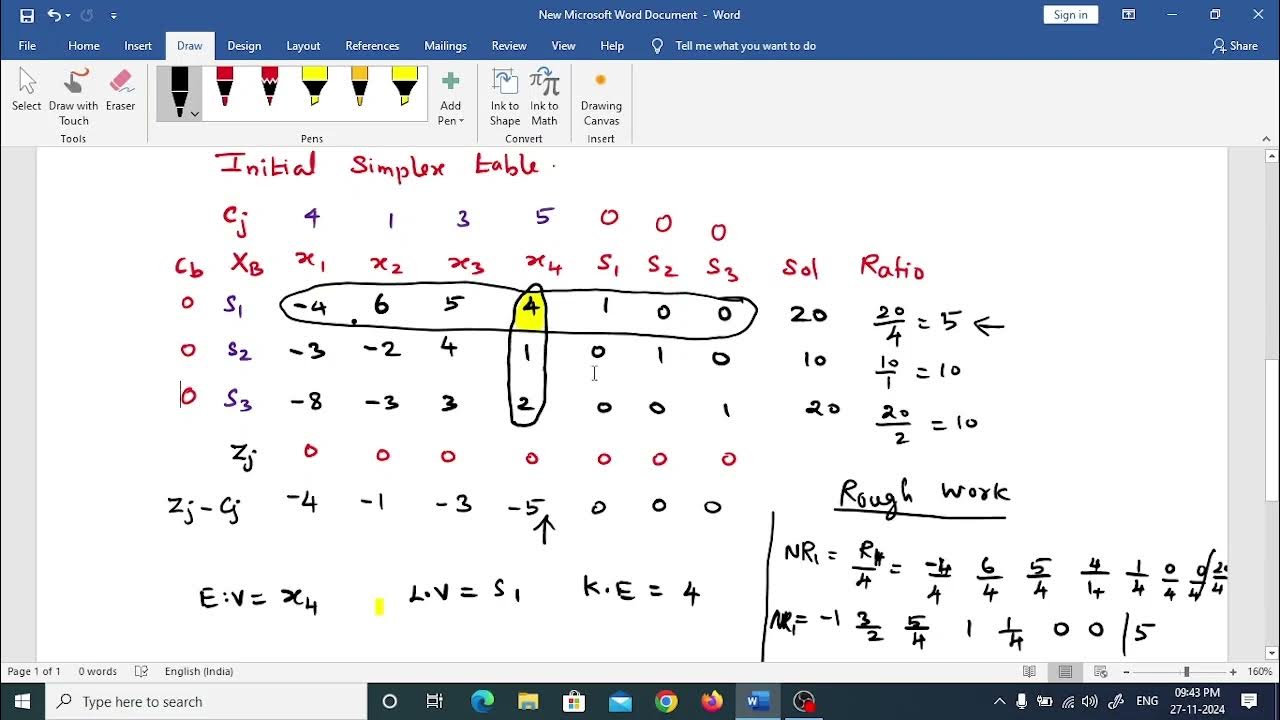 New Microsoft Word Document - Word
Sign in
File Home Insert Draw Design Layout References Mailings Review View Help Tell me what you want to do Share
Select Draw with Touch Eraser Add Pen Ink to Shape Ink to Math Drawing Canvas
Tools Pens Convert Insert
Initial Simplex table.
Cj 4 1 3 5 0 0 0
Cb XB x1 x2 x3 x4 S1 S2 S3 Sol Ratio
0 S1 -4 6 5 4 1 0 0 20 20/4 = 5 ←
0 S2 -3 -2 4 1 0 1 0 10 10/1 = 10
0 S3 -8 -3 3 2 0 0 1 20 20/2 = 10
Zj 0 0 0 0 0 0 0
Zj - Cj -4 -1 -3 -5 ↑ 0 0 0
Rough work
NR1 = R1/4 = -4/4 6/4 5/4 4/4 1/4 0/4 0/4 / 20/4
E.V = x4 L.V = S1 K.E = 4
NR1 = -1 3/2 5/4 1 1/4 0 0 / 5
Page 1 of 1 0 words English (India) 160%
Type here to search
ENG
09:43 PM
27-11-2024